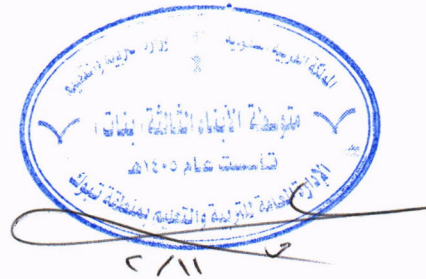 المملكة العربية السعودية
وزارة التربية والتعليم
متوسطة الأبناء الثالثة (بنات)
تأسست عام ١٤٠٥هـ
للتربية والتعليم بمنطقة تبوك
٢/١١